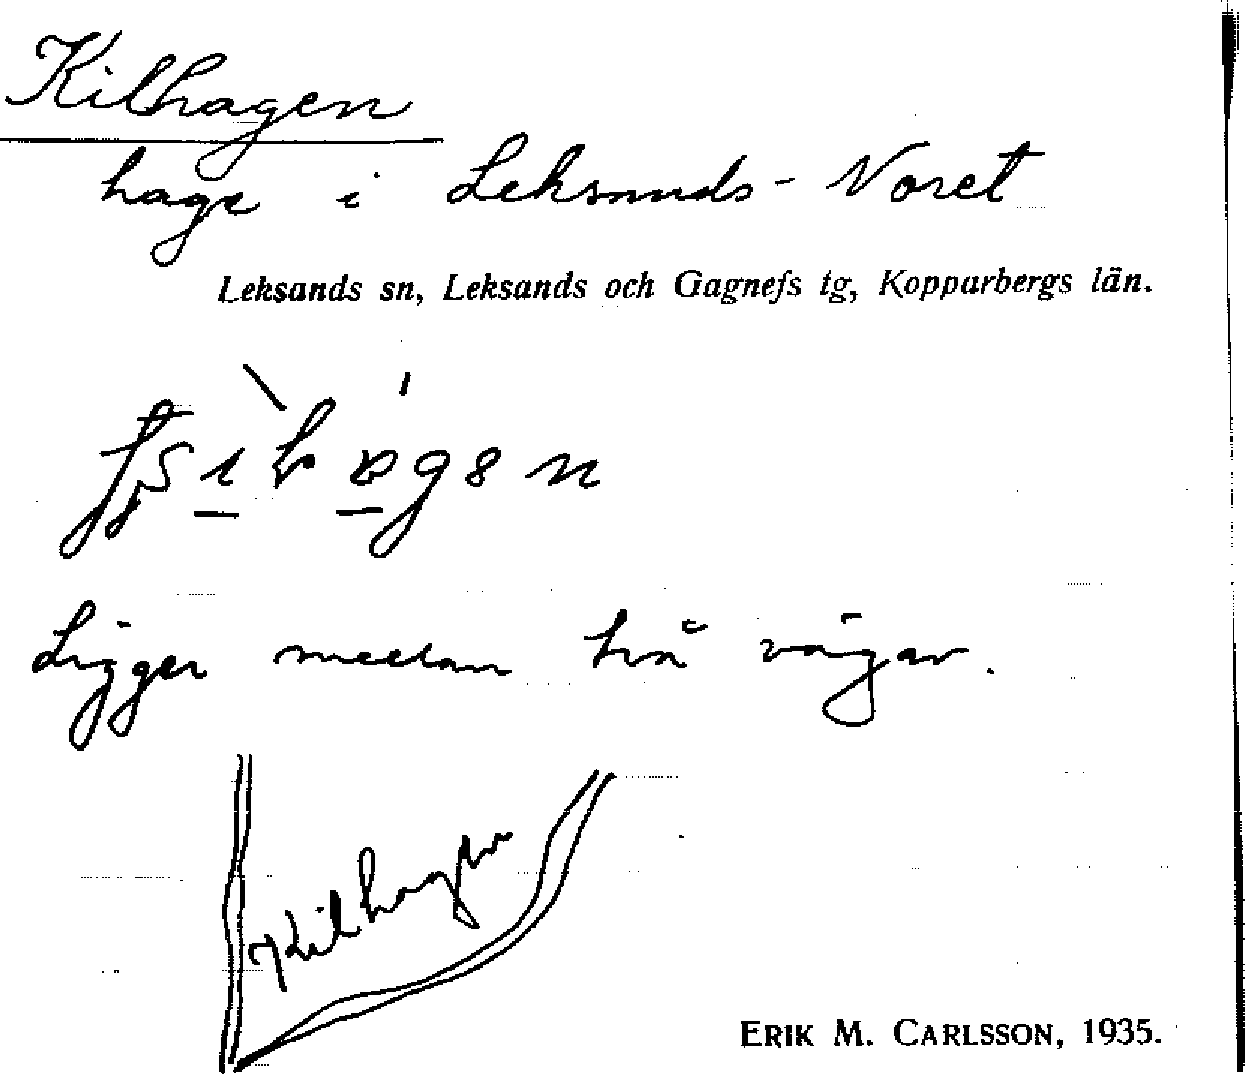 Kilhagen
hage i Leksands-Noret
Leksands sn, Leksands och Gagnefs tg, Kopparbergs län.
Ligger mellan två vägar.
Kilhagen
ERIK M. CARLSSON, 1935.